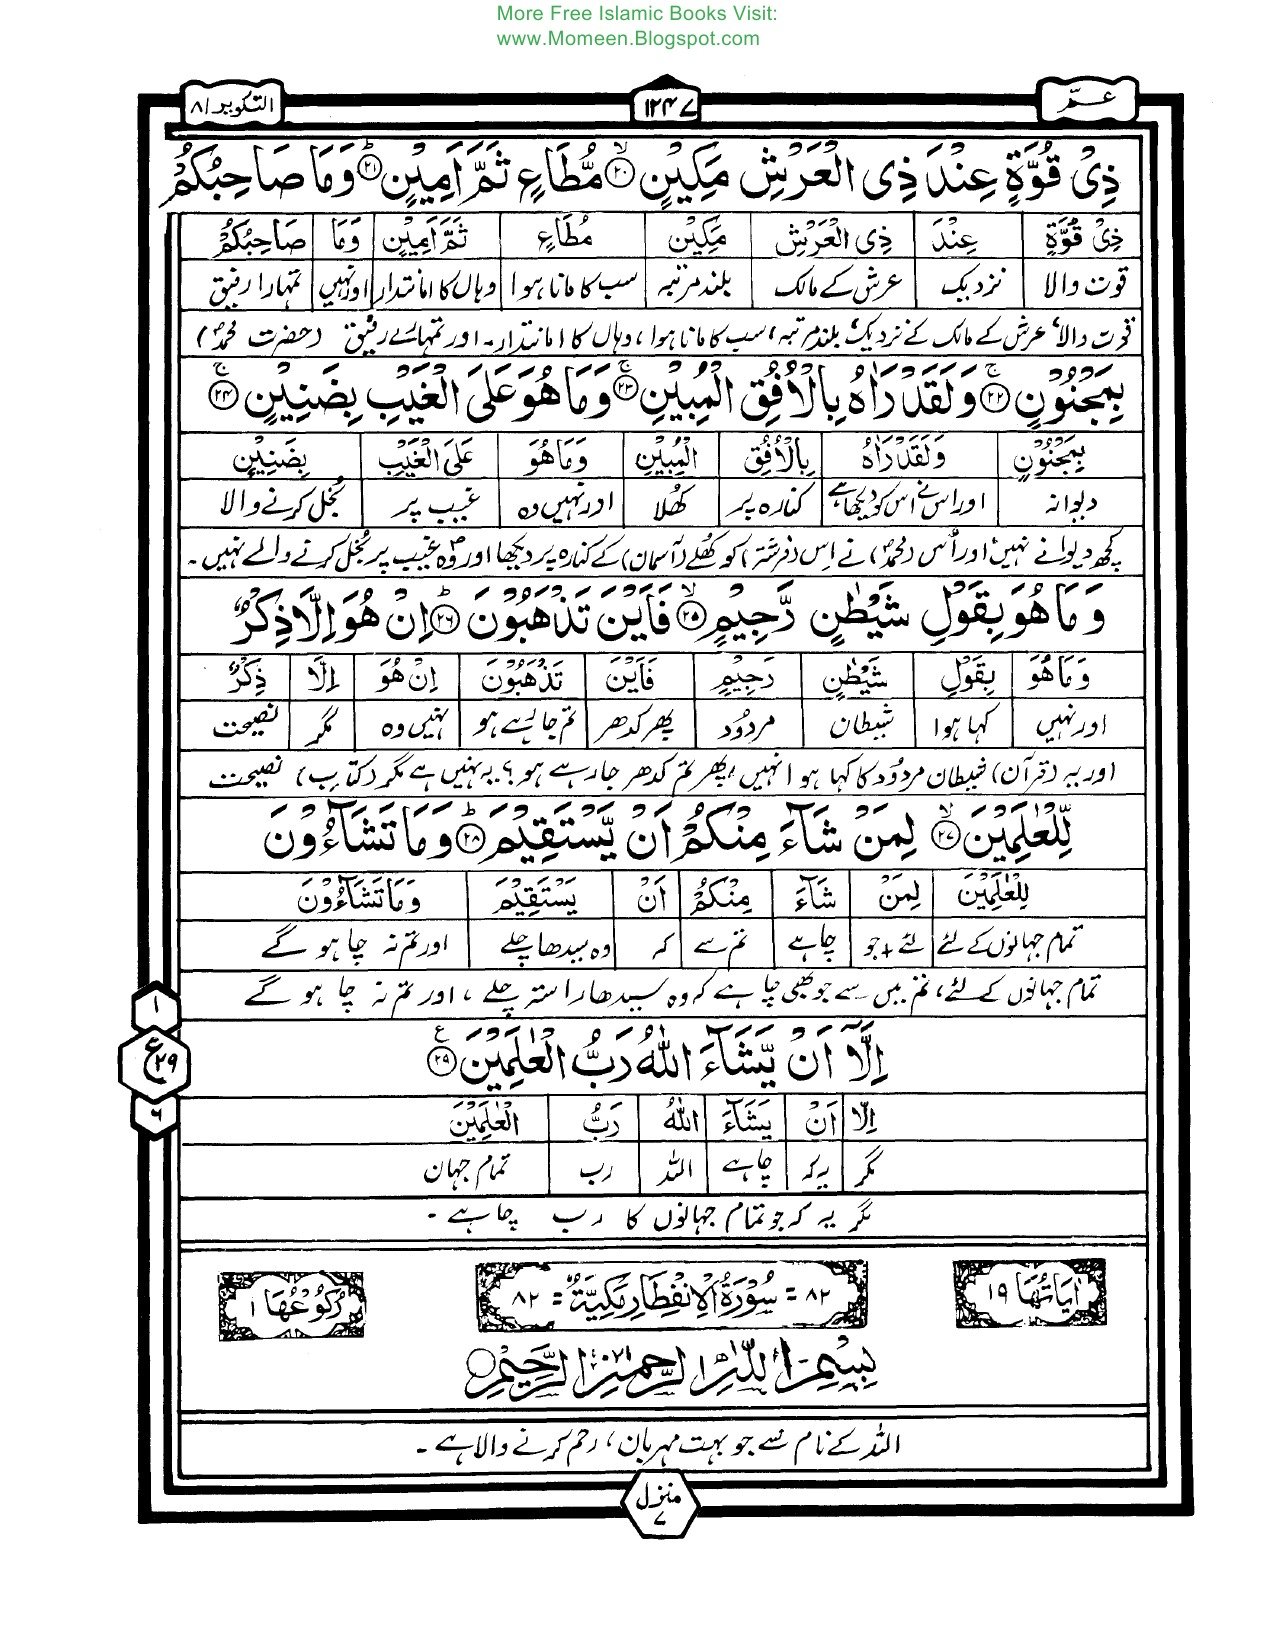 More Free Islamic Books Visit:
www.Momeen.Blogspot.com
عمّ
۱۲۴۷
التکویر ۸۱
ذِیْ قُوَّةٍ عِنْدَ ذِی الْعَرْشِ مَكِیْنٍ ۲۰ مُّطَاعٍ ثَمَّ اَمِیْنٍ ۲۱ وَمَا صَاحِبُكُمْ
ذِیْ قُوَّةٍ عِنْدَ ذِی الْعَرْشِ مَكِیْنٍ مُّطَاعٍ ثَمَّ اَمِیْنٍ وَمَا صَاحِبُكُمْ
قوت والا نزدیک عرش کے مالک بلند مرتبہ سب کا مانا ہوا وہاں کا امانتدار اور نہیں تمہارا رفیق
قوت والا، عرش کے مالک کے نزدیک بلند مرتبہ، سب کا مانا ہوا، وہاں کا امانتدار۔ اور تمہارے رفیق (حضرت محمدؐ)
بِمَجْنُوْنٍ ۲۲ وَلَقَدْ رَاٰهُ بِالْاُفُقِ الْمُبِیْنِ ۲۳ وَمَا هُوَ عَلَی الْغَیْبِ بِضَنِیْنٍ ۲۴
بِمَجْنُوْنٍ وَلَقَدْ رَاٰهُ بِالْاُفُقِ الْمُبِیْنِ وَمَا هُوَ عَلَی الْغَیْبِ بِضَنِیْنٍ
دیوانہ اور اس نے اس کو دیکھا ہے کنارہ پر کھلا اور نہیں وہ غیب پر بخل کرنے والا
کچھ دیوانے نہیں، اور اُس (محمدؐ) نے اس (فرشتہ) کو کھلے (آسمان) کے کنارہ پر دیکھا اور وہؐ غیب پر بخل کرنے والے نہیں۔
وَمَا هُوَ بِقَوْلِ شَیْطٰنٍ رَّجِیْمٍ ۲۵ فَاَیْنَ تَذْهَبُوْنَ ۲۶ اِنْ هُوَ اِلَّا ذِكْرٌ
وَمَا هُوَ بِقَوْلِ شَیْطٰنٍ رَّجِیْمٍ فَاَیْنَ تَذْهَبُوْنَ اِنْ هُوَ اِلَّا ذِكْرٌ
اور نہیں کہا ہوا شیطان مردود پھر کدھر تم جا رہے ہو نہیں وہ مگر نصیحت
اور یہ (قرآن) شیطان مردود کا کہا ہوا نہیں، پھر تم کدھر جا رہے ہو؟ یہ نہیں ہے مگر (کتاب) نصیحت
لِّلْعٰلَمِیْنَ ۲۷ لِمَنْ شَآءَ مِنْكُمْ اَنْ یَّسْتَقِیْمَ ۲۸ وَمَا تَشَآءُوْنَ
لِّلْعٰلَمِیْنَ لِمَنْ شَآءَ مِنْكُمْ اَنْ یَسْتَقِیْمَ وَمَا تَشَآءُوْنَ
تمام جہانوں کے لئے لئے + جو چاہے تم سے کہ وہ سیدھا چلے اور تم نہ چاہو گے
تمام جہانوں کے لئے، تم میں سے جو بھی چاہے کہ وہ سیدھا راستہ چلے، اور تم نہ چاہو گے
اِلَّاۤ اَنْ یَّشَآءَ اللّٰهُ رَبُّ الْعٰلَمِیْنَ ۲۹ ع
اِلَّا اَنْ یَشَآءَ اللّٰهُ رَبُّ الْعٰلَمِیْنَ
مگر یہ کہ چاہے اللہ رب تمام جہان
مگر یہ کہ جو تمام جہانوں کا رب چاہے۔
۱
ع ۲۹
۶
اٰیَاتُهَا ۱۹
۸۲ = سُوْرَةُ الْاِنْفِطَارِ مَكِّیَّةٌ = ۸۲
رُكُوْعُهَا ۱
بِسْمِ اللّٰهِ الرَّحْمٰنِ الرَّحِیْمِ
اللہ کے نام سے جو بہت مہربان، رحم کرنے والا ہے۔
منزل
۷